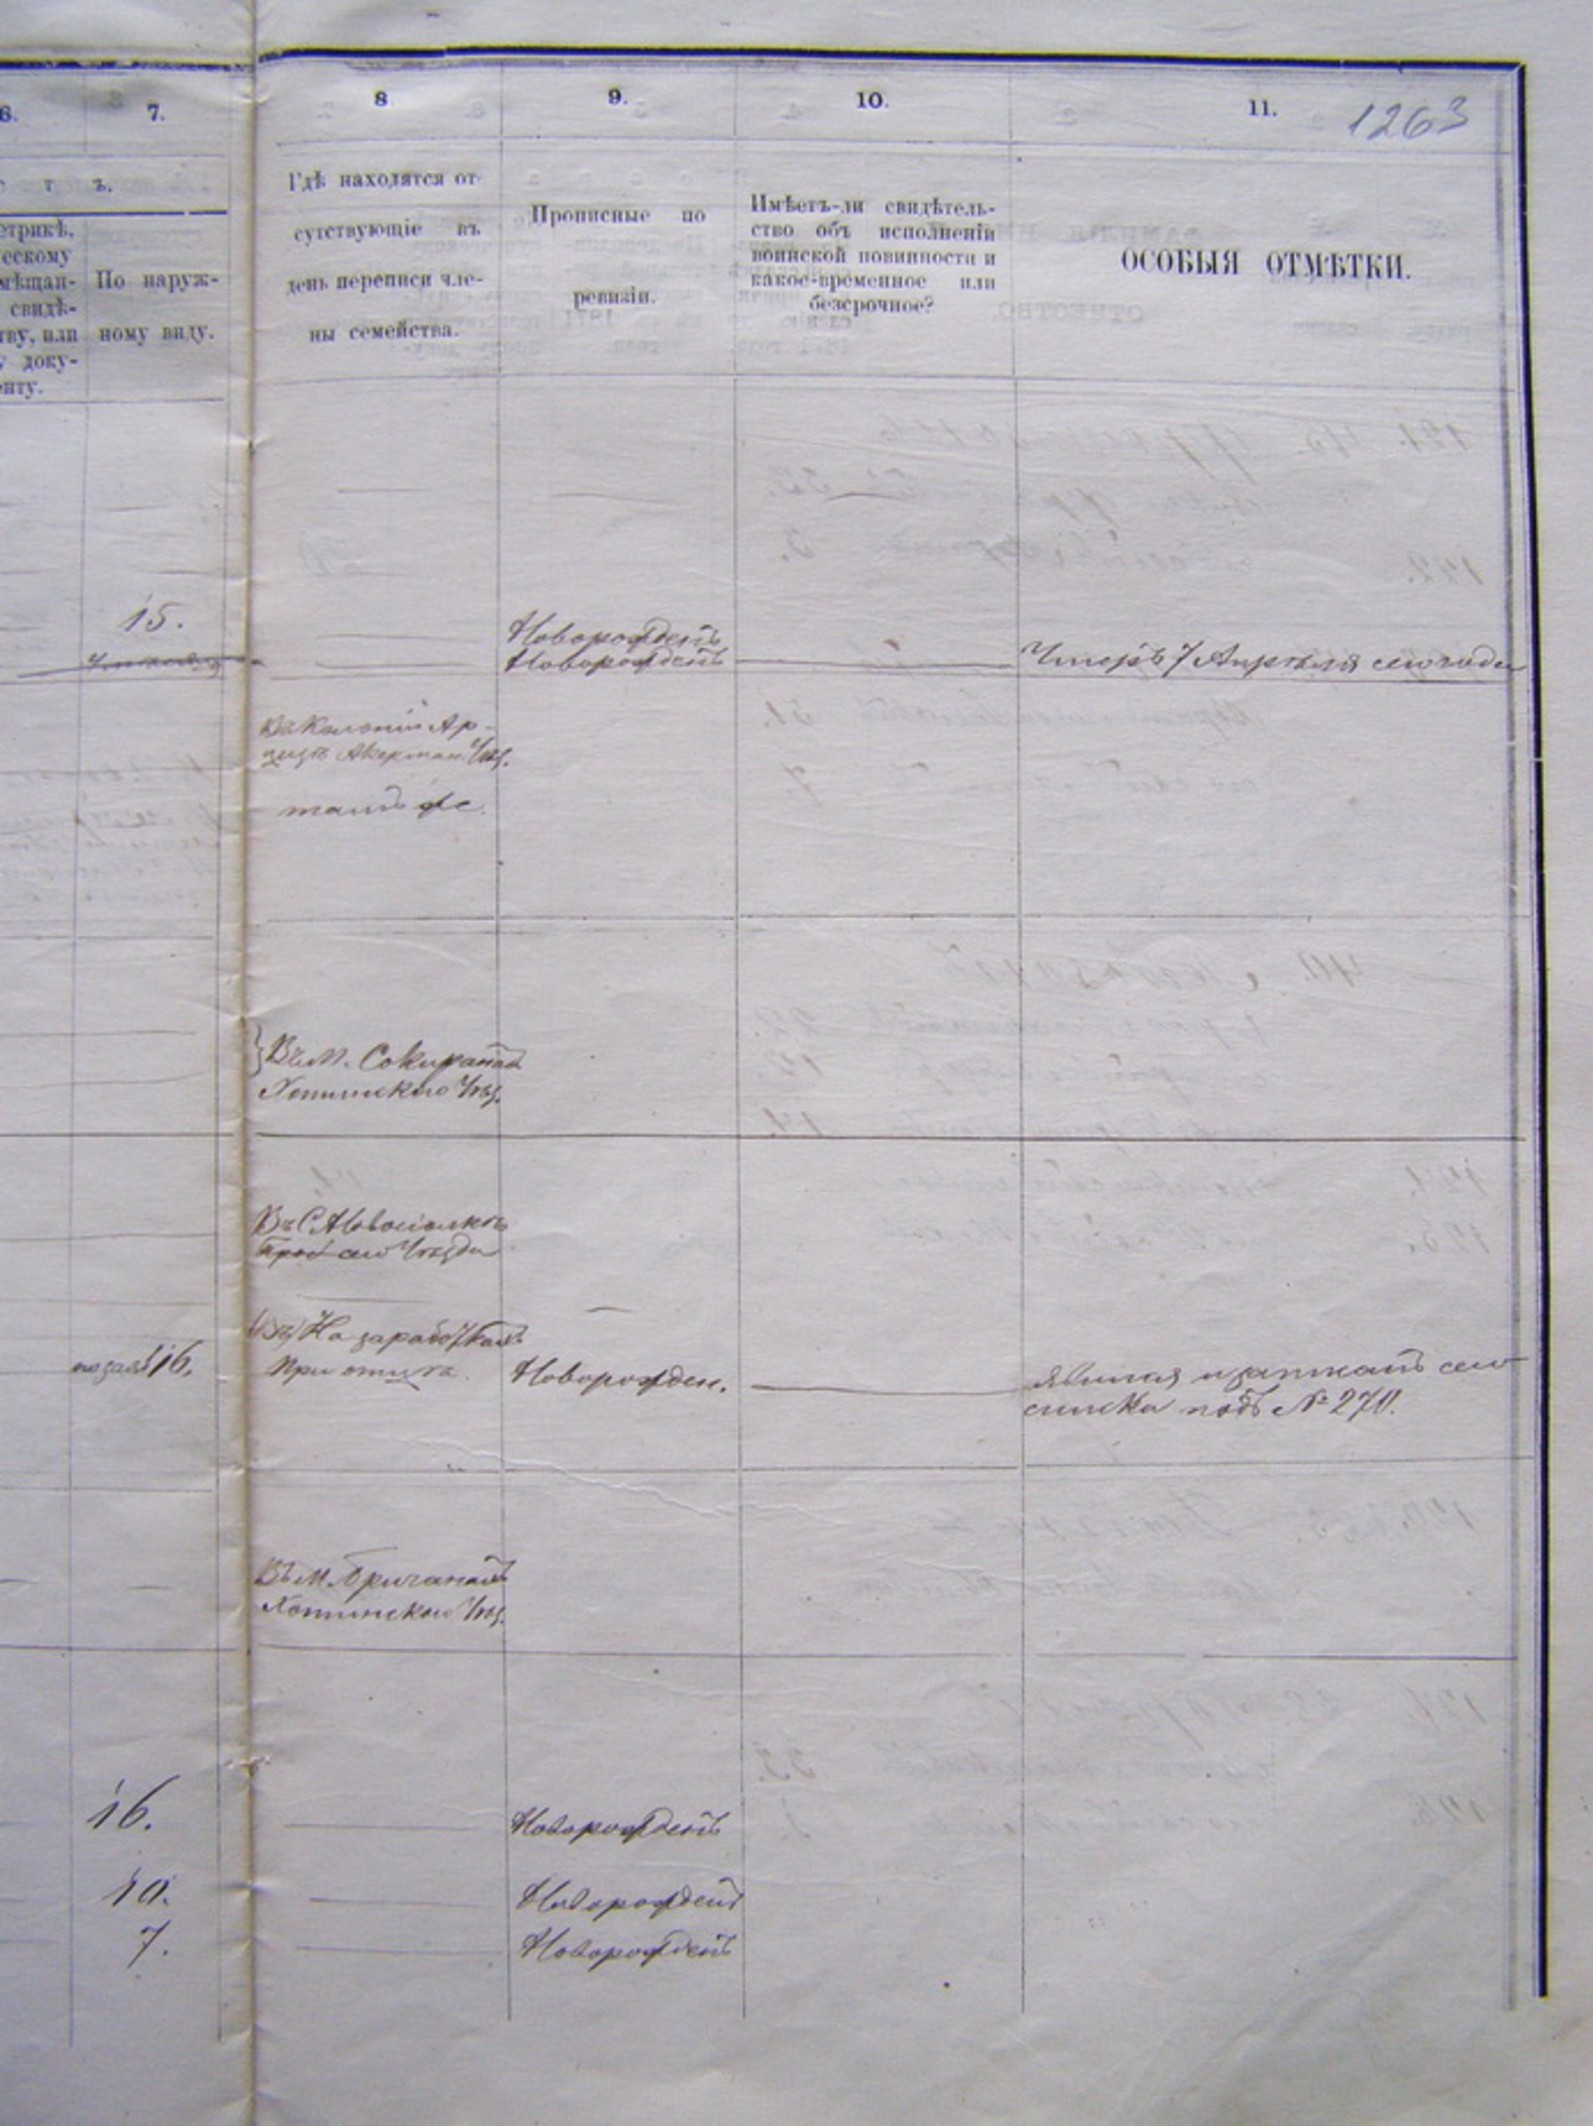 6. 7. 8. 9. 10. 11. 1263
с т ъ.
етрикѣ,
ескому
мѣщан-
свидѣ-
тву, или
у доку-
енту.
По наруж-
ному виду.
Гдѣ находятся от-
сутствующіе въ
день переписи чле-
ны семейства.
Прописные по
ревизіи.
Имѣетъ-ли свидѣтель-
ство объ исполненіи
воинской повинности и
какое-временное или
безсрочное?
ОСОБЫЯ ОТМѢТКИ.
15. Новорожденъ
Новорожденъ Умеръ 7 Апрѣля сего года
Въ Колоніи Ар-
цизъ Акерман. Уѣз.
тамъ же.
Въ м. Сокиранахъ
Хотинскаго Уѣз.
Въ С. Новоселкѣ
сего Уѣзда
На заработкахъ
16. При отцѣ. Новорожден.
списка подъ № 270.
Въ м. Бричанахъ
Хотинскаго Уѣз.
16. Новорожденъ
10. Новорожденъ
7. Новорожденъ